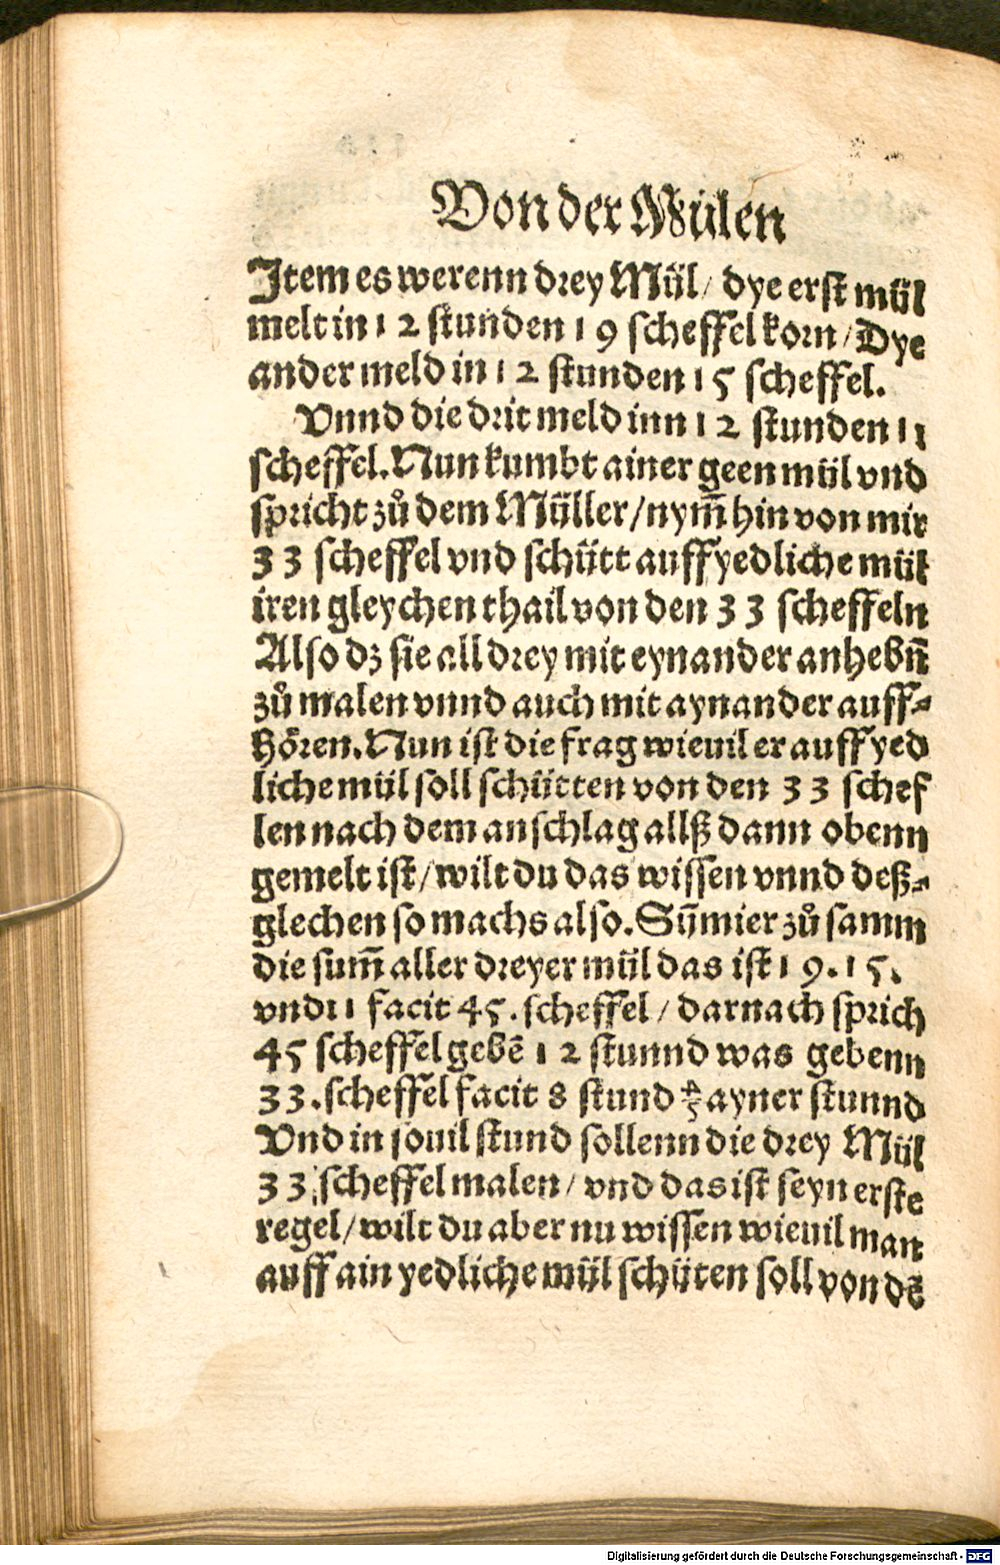 Von der Mülen
Item es werenn drey Mül / dye erst mül
melt in 12 stunden 19 scheffel korn / Dye
ander meld in 12 stunden 15 scheffel.
Vnnd die drit meld inn 12 stunden 11
scheffel. Nun kumbt ainer geen mül vnd
spricht zů dem Müller / nym̄ hin von mir
33 scheffel vnd schütt auff yedliche mül
iren gleychen thail von den 33 scheffeln
Also dz sie all drey mit eynander anhebn̄
zů malen vnnd auch mit aynander auff⸗
hören. Nun ist die frag wieuil er auff yed
liche mül soll schütten von den 33 schef
len nach dem anschlag allß dann obenn
gemelt ist / wilt du das wissen vnnd deß⸗
glechen so machs also. Sum̄ier zů samm
die sum̄ aller dreyer mül das ist 19. 15.
vnd 11 facit 45. scheffel / darnach sprich
45 scheffel gebē 12 stunnd was gebenn
33. scheffel facit 8 stund 4/5 ayner stunnd
Vnd in souil stund sollenn die drey Mül
33 scheffel malen / vnd das ist seyn erste
regel / wilt du aber nu wissen wieuil man
auff ain yedliche mül schüten soll von dē
Digitalisierung gefördert durch die Deutsche Forschungsgemeinschaft - DFG